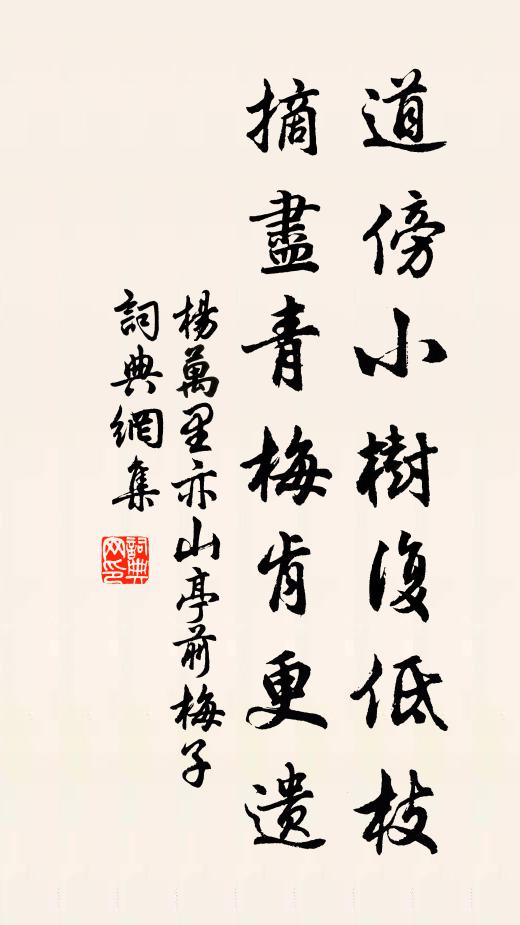 道傍小樹復低枝
摘盡青梅肯更遺
楊萬里亦山亭前梅子
詞典網集
詞典網印